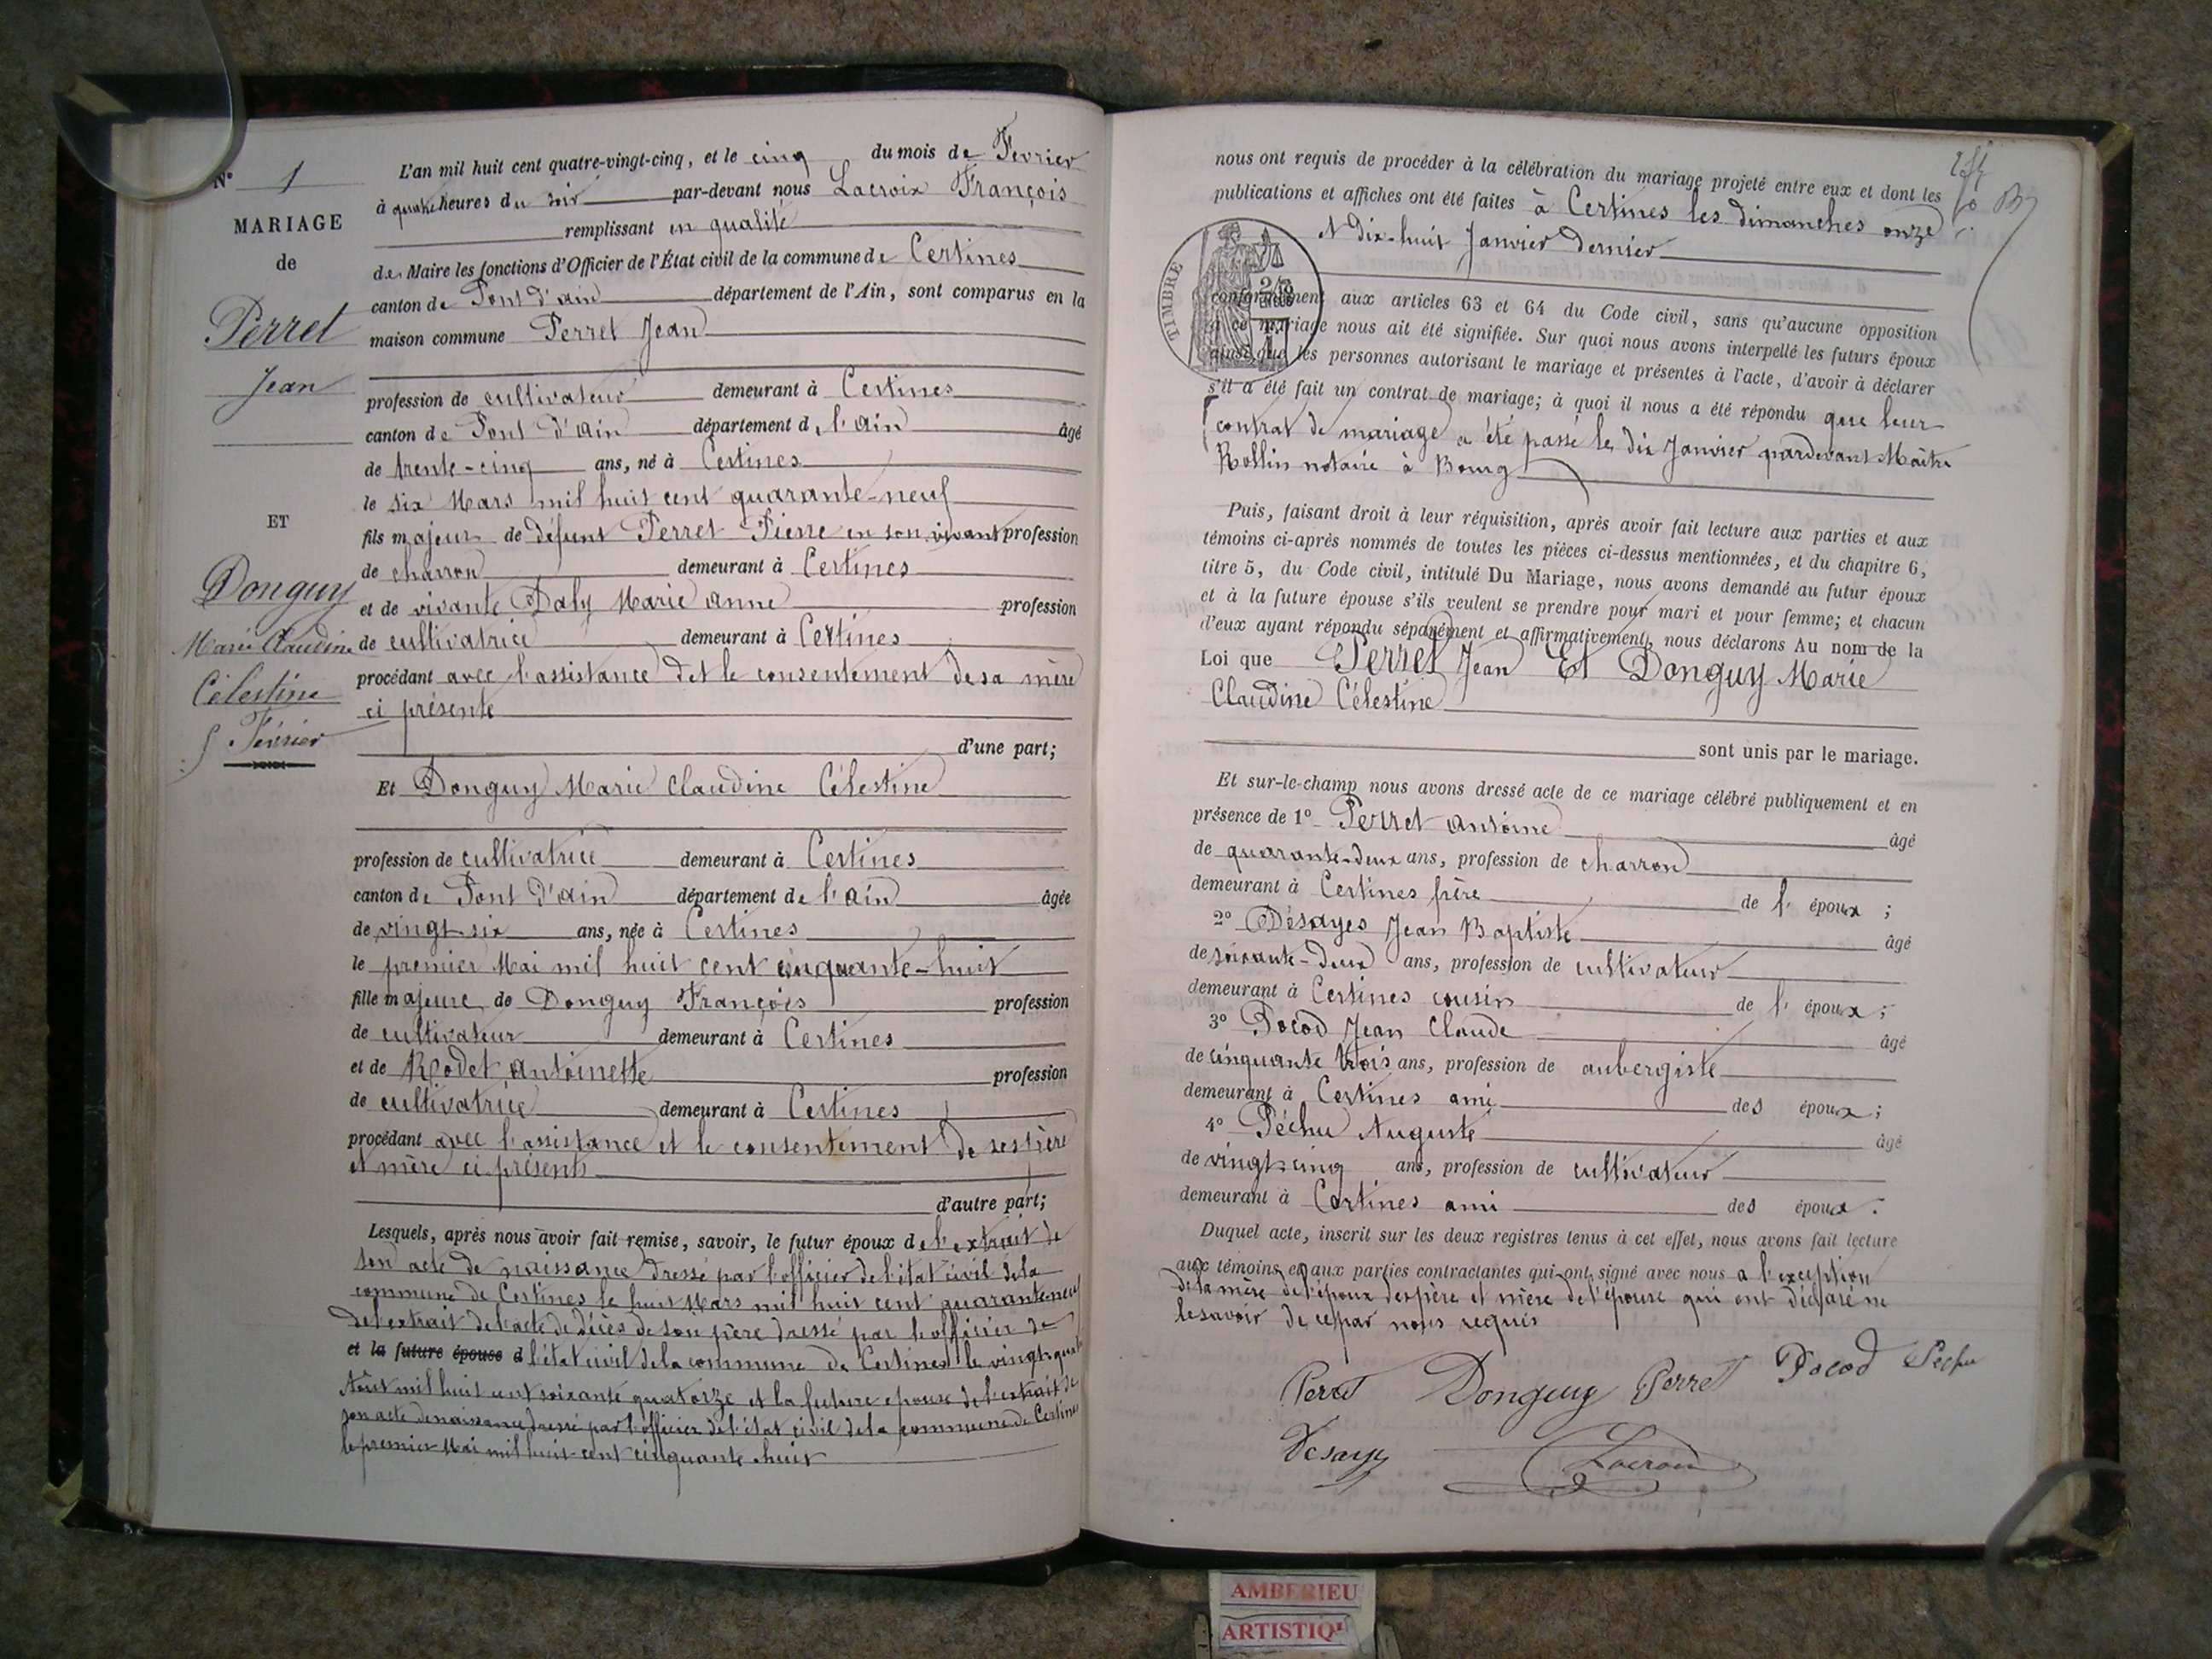 N° 1
MARIAGE
de
Perret
Jean
ET
Donguy
Marie Claudine
Célestine
5 Février
L'an mil huit cent quatre-vingt-cinq, et le cinq du mois de Fevrier
à quatre heures du soir par-devant nous Lacroix François
remplissant en qualité
de Maire les fonctions d'Officier de l'État civil de la commune de Certines
canton de Pont d'ain département de l'Ain, sont comparus en la
maison commune Perret Jean
profession de cultivateur demeurant à Certines
canton de Pont d'ain département de l'ain âgé
de trente-cinq ans, né à Certines
le six Mars mil huit cent quarante-neuf
fils majeur de défunt Perret Pierre en son vivant profession
de charron demeurant à Certines
et de vivante Daly Marie anne profession
de cultivatrice demeurant à Certines
procédant avec l'assistance et le consentement de sa mère
ci présente
d'une part;
Et Donguy Marie Claudine Célestine
profession de cultivatrice demeurant à Certines
canton de Pont d'ain département de l'ain âgée
de vingt-six ans, née à Certines
le premier Mai mil huit cent cinquante-huit
fille majeure de Donguy François profession
de cultivateur demeurant à Certines
et de Rodet Antoinette profession
de cultivatrice demeurant à Certines
procédant avec l'assistance et le consentement de ses père
et mère ci présents
d'autre part;
Lesquels, après nous avoir fait remise, savoir, le futur époux de l'extrait de
son acte de naissance dressé par l'officier de l'état civil de la
commune de Certines le huit Mars mil huit cent quarante neuf
de l'extrait de l'acte de décès de son père dressé par l'officier de
et la future épouse d l'état civil de la commune de Certines le vingt-quatre
Août mil huit cent soixante quatorze et la future épouse de l'extrait de
son acte de naissance dressé par l'officier de l'état civil de la commune de Certines
le premier Mai mil huit cent cinquante huit
nous ont requis de procéder à la célébration du mariage projeté entre eux et dont les
publications et affiches ont été faites à Certines les dimanches onze
et dix-huit Janvier dernier
TIMBRE
conformément aux articles 63 et 64 du Code civil, sans qu'aucune opposition
à ce mariage nous ait été signifiée. Sur quoi nous avons interpellé les futurs époux
ainsi que les personnes autorisant le mariage et présentes à l'acte, d'avoir à déclarer
s'il a été fait un contrat de mariage; à quoi il nous a été répondu que leur
contrat de mariage a été passé le dix Janvier pardevant Maître
Rollin notaire à Bourg
Puis, faisant droit à leur réquisition, après avoir fait lecture aux parties et aux
témoins ci-après nommés de toutes les pièces ci-dessus mentionnées, et du chapitre 6,
titre 5, du Code civil, intitulé Du Mariage, nous avons demandé au futur époux
et à la future épouse s'ils veulent se prendre pour mari et pour femme; et chacun
d'eux ayant répondu séparément et affirmativement, nous déclarons Au nom de la
Loi que Perret Jean Et Donguy Marie
Claudine Célestine
sont unis par le mariage.
Et sur-le-champ nous avons dressé acte de ce mariage célébré publiquement et en
présence de 1° Perret Antoine âgé
de quarante-deux ans, profession de charron
demeurant à Certines frère de l' époux ;
2° Désayes Jean Baptiste âgé
de soixante-deux ans, profession de cultivateur
demeurant à Certines cousin de l' époux ;
3° Pocod Jean Claude âgé
de cinquante trois ans, profession de aubergiste
demeurant à Certines ami des époux ;
4° Péchu Auguste âgé
de vingt-cinq ans, profession de cultivateur
demeurant à Certines ami des époux .
Duquel acte, inscrit sur les deux registres tenus à cet effet, nous avons fait lecture
aux témoins et aux parties contractantes qui ont signé avec nous a l'exception
de la mère de l'époux des père et mère de l'épouse qui ont déclaré ne
le savoir de ce par nous requis
Perret Donguy Perret Pocod Péchu
Desayes Lacroix
AMBERIEU
ARTISTIQ